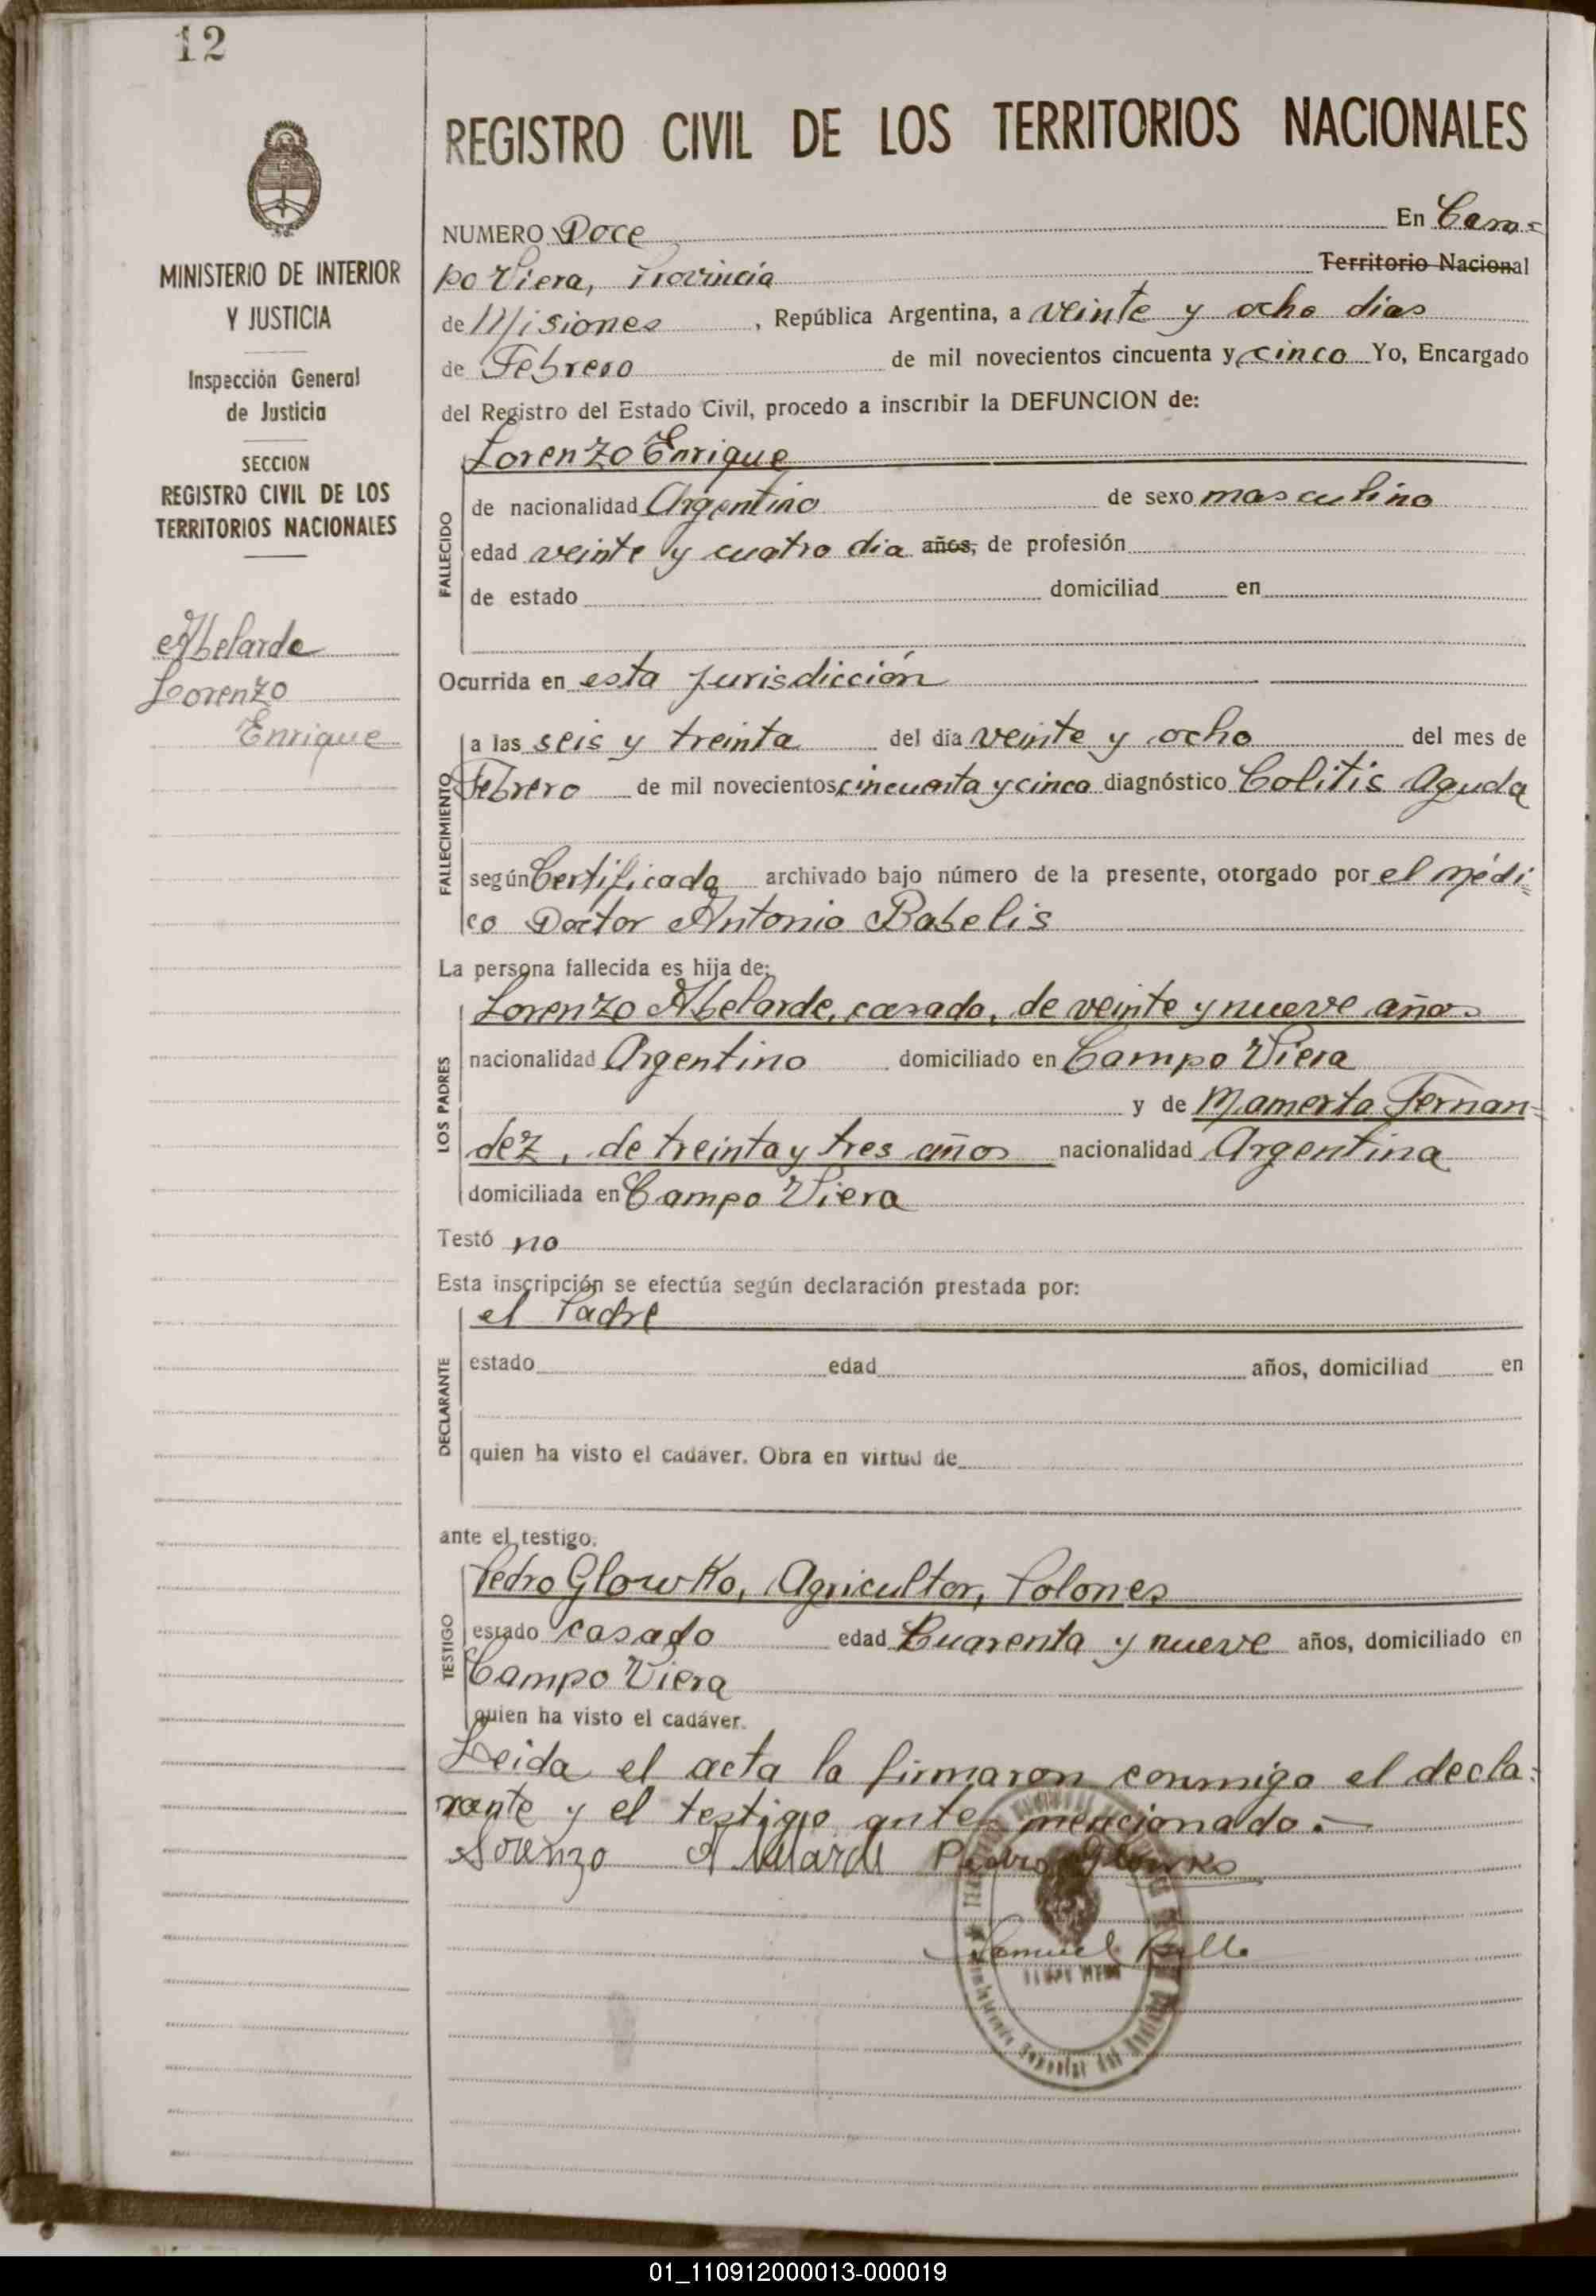 12
REGISTRO CIVIL DE LOS TERRITORIOS NACIONALES
MINISTERIO DE INTERIOR
Y JUSTICIA
Inspección General
de Justicia
SECCION
REGISTRO CIVIL DE LOS
TERRITORIOS NACIONALES
Abelarde
Lorenzo
Enrique
NUMERO Doce En Cam=
po Viera, Provincia Territorio Nacional
de Misiones, República Argentina, a veinte y ocho dias
de Febrero de mil novecientos cincuenta y cinco Yo, Encargado
del Registro del Estado Civil, procedo a inscribir la DEFUNCION de:
Lorenzo Enrique
FALLECIDO
de nacionalidad Argentino de sexo masculino
edad veinte y cuatro dia años, de profesión
de estado domiciliad en
Ocurrida en esta jurisdicción
FALLECIMIENTO
a las seis y treinta del día veinte y ocho del mes de
Febrero de mil novecientos cincuenta y cinco diagnóstico Colitis Aguda
según Certificado archivado bajo número de la presente, otorgado por el médi=
co Doctor Antonio Babelis
La persona fallecida es hija de:
LOS PADRES
Lorenzo Abelarde, casado, de veinte y nueve años
nacionalidad Argentino domiciliado en Campo Viera
y de Mamerta Fernan=
dez, de treinta y tres años nacionalidad Argentina
domiciliada en Campo Viera
Testó no
Esta inscripción se efectúa según declaración prestada por:
DECLARANTE
el Padre
estado edad años, domiciliad en
quien ha visto el cadáver. Obra en virtud de
ante el testigo.
TESTIGO
Pedro Glowko, Agricultor, Polones
estado casado edad Cuarenta y nueve años, domiciliado en
Campo Viera
quien ha visto el cadáver.
Leida el acta la firmaron conmigo el decla=
rante y el testigo antes mencionado.-
Lorenzo Pedro Glowko
Samuel
01_110912000013-000019